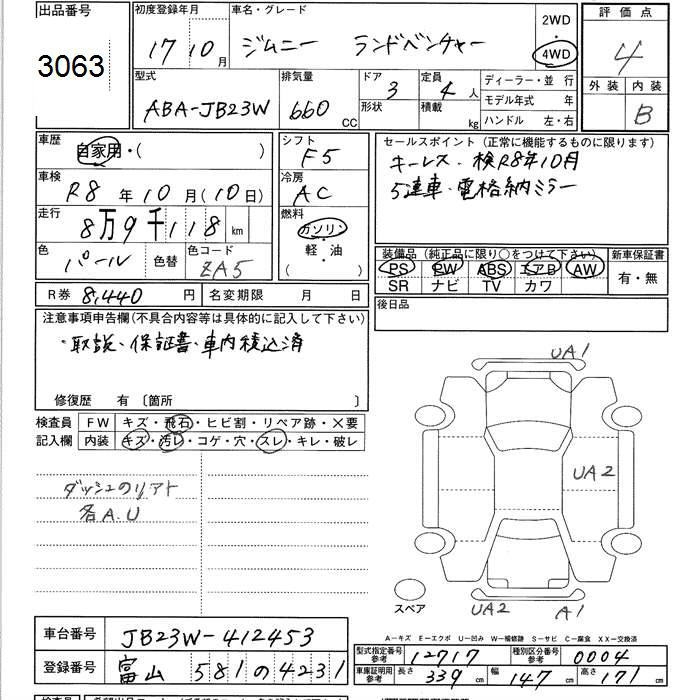 出品番号
3063
初度登録年月
17 10月
車名・グレード
ジムニー ランドベンチャー
2WD
4WD
評価点
4
外装 内装
B
型式
ABA-JB23W
排気量
660 CC
ドア 3
形状
定員 4人
積載 kg
ディーラー・並行
モデル年式 年
ハンドル 左・右
車歴
自家用・( )
シフト
F5
セールスポイント（正常に機能するものに限ります）
キーレス・検R8年10月
5連車・電格納ミラー
車検
R8年10月(10日)
冷房
AC
走行
8万9千118 km
燃料
ガソリン
軽・油
( )
色
パール
色替
色コード
ZA5
装備品（純正品に限り○をつけて下さい）
PS PW ABS エアB AW
SR ナビ TV カワ
新車保証書
有・無
R券 8,440円
名変期限 月 日
後日品
注意事項申告欄(不具合内容等は具体的に記入して下さい)
・取説・保証書・車内積込済
修復歴 有〔箇所 〕
検査員
記入欄
FW キズ・飛石・ヒビ割・リペア跡・×要
内装 キズ・汚レ・コゲ・穴・スレ・キレ・破レ
ダッシュのリアト
各A.U
UA1
UA2
スペア
UA2 A1
A－キズ E－エクボ U－凹み W－補修跡 S－サビ C－腐食 XX－交換済
車台番号 JB23W-412453
登録番号 富山 581の4231
型式指定番号
参考
12717
種別区分番号
参考
0004
車庫証明用
参考
長さ 339cm
幅 147cm
高さ 171cm